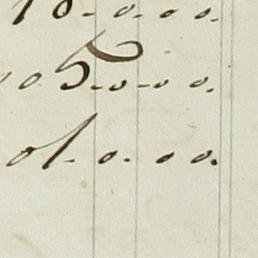 18.0.0 0.
005.0.0 0.
01.0.0 0.